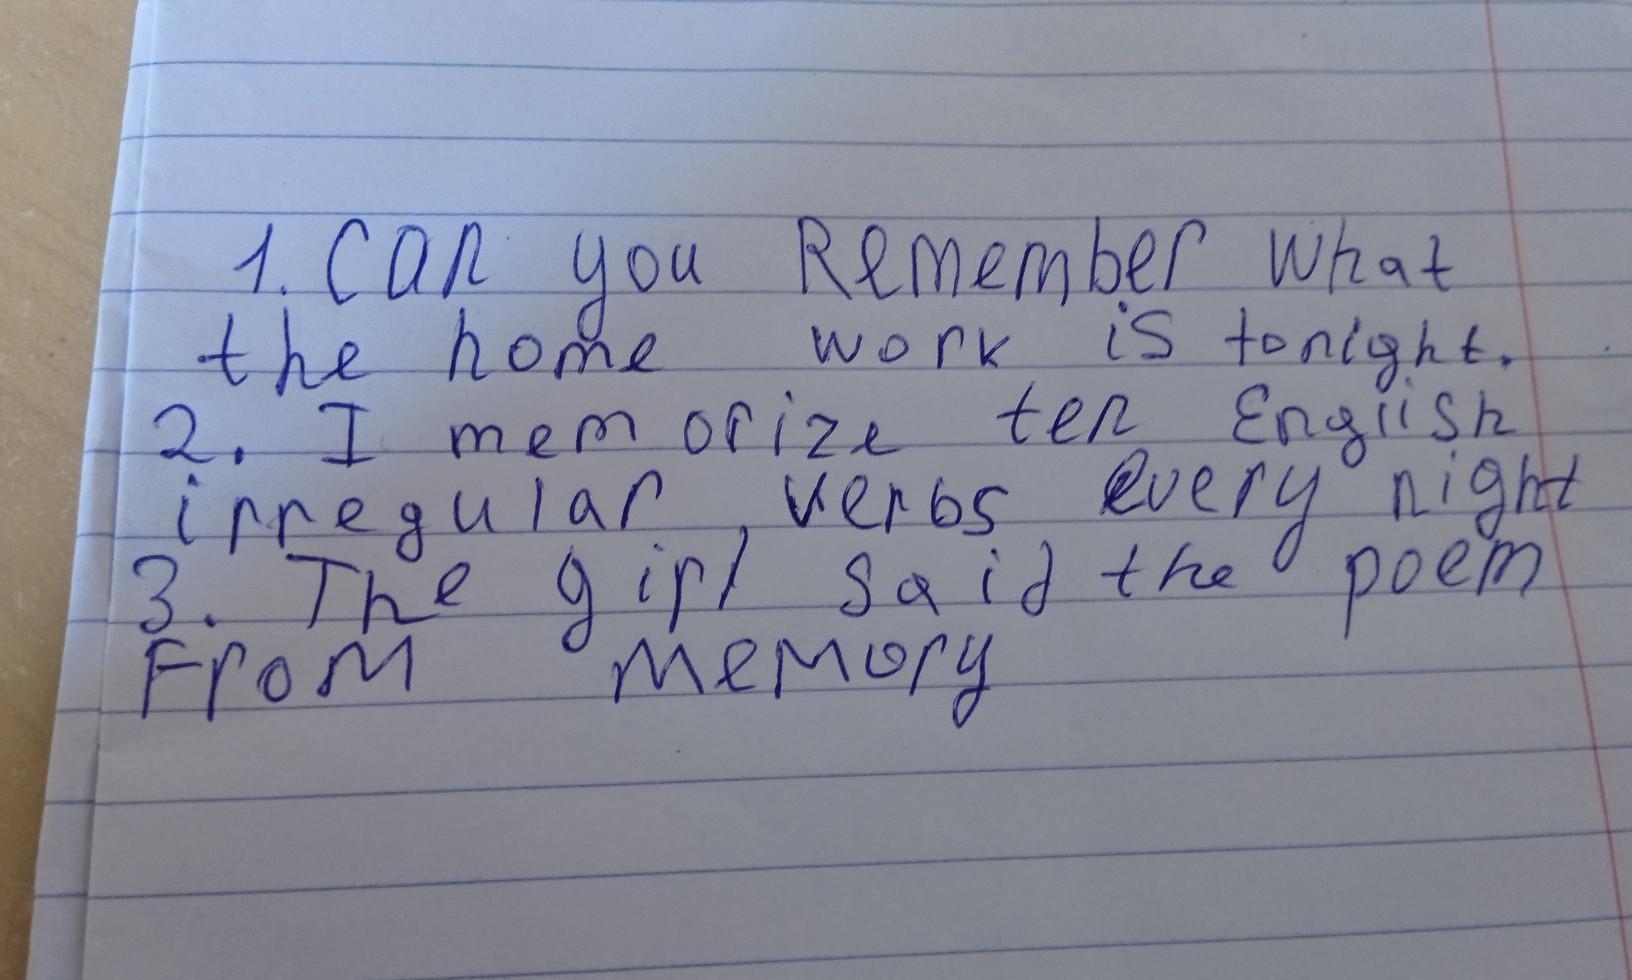 1. Can you Remember what
the home work is tonight.
2. I memorize ten English
irregular, verbs every night
3. The girl said the poem
From memory